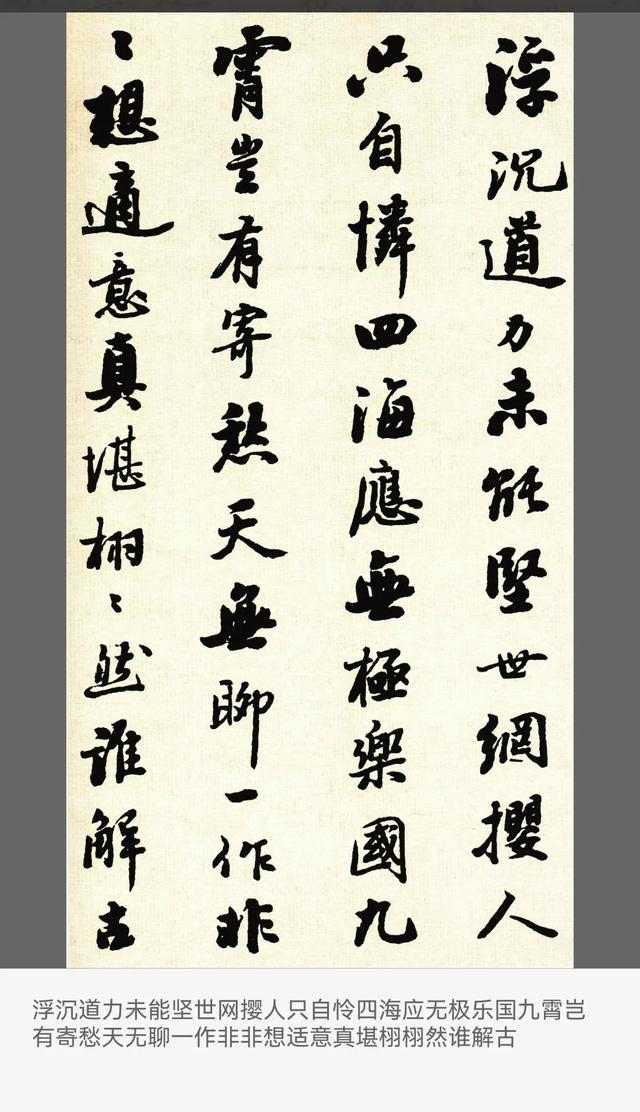 浮沉道力未能堅世網攖人
只自憐四海應無極樂國九
霄豈有寄愁天無聊一作非
〻想適意真堪栩〻然誰解古
浮沉道力未能坚世网撄人只自怜四海应无极乐国九霄岂
有寄愁天无聊一作非非想适意真堪栩栩然谁解古